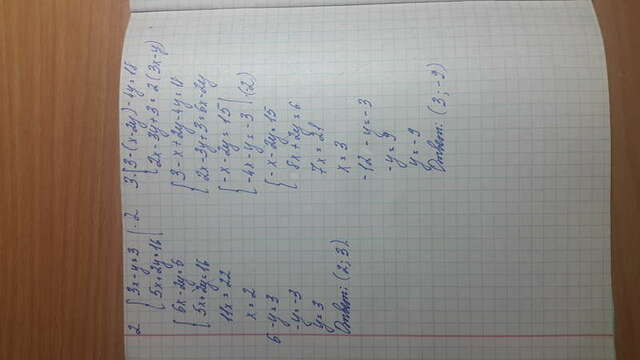 2 { 3x-y=3 |·2
5x+2y=16
{ 6x-2y=6
5x+2y=16
11x=22
x=2
6-y=3
-y=-3
y=3
Ответ: (2; 3)
3. { 3-(x-2y)-4y=18
2x-3y+3=2(3x-y)
{ 3-x+2y-4y=18
2x-3y+3=6x-2y
{ -x-2y=15
-4x-y=-3 |·(2)
{ -x-2y=15
8x+2y=6
7x=21
x=3
-12-y=-3
-y=9
y=-9
Ответ: (3; -9)